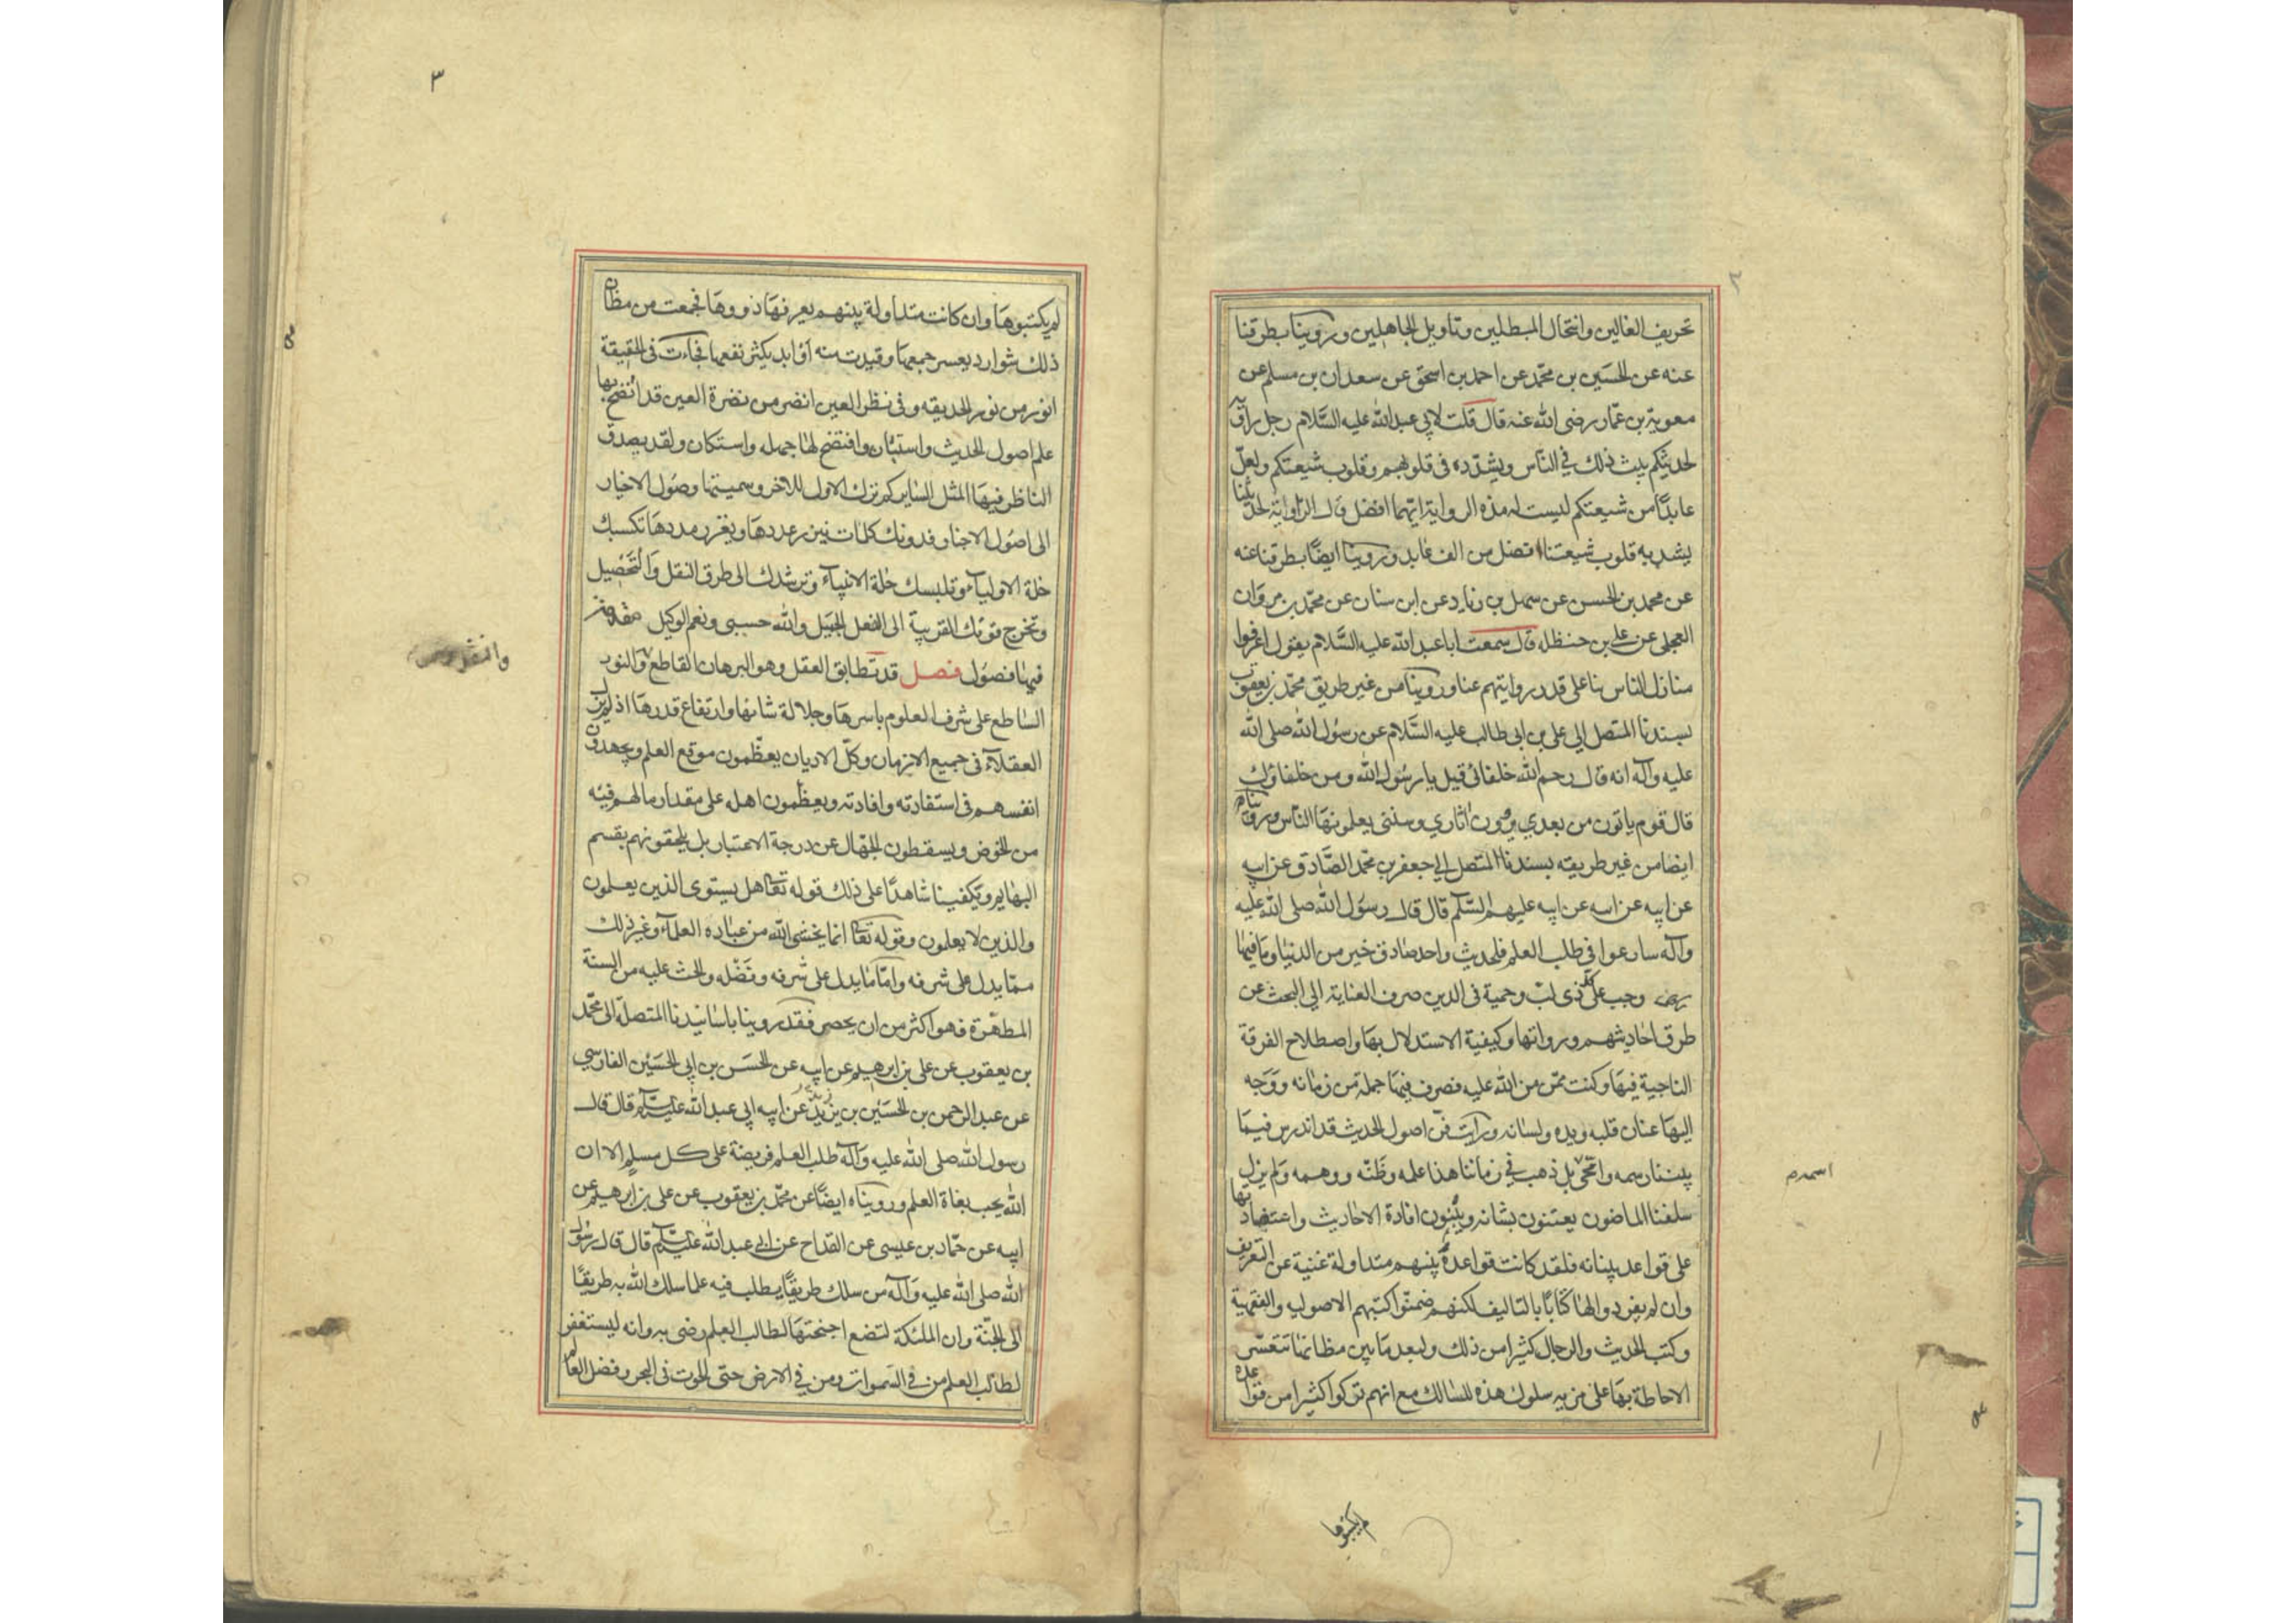 تحريف الغالين وانتحال المبطلين وتاويل الجاهلين وروينا بطرقنا
عنه عن الحسين بن محمد عن احمد بن اسحق عن سعدان بن مسلم عن
معوية بن عمار رضى الله عنه قال قلت لابي عبد الله عليه السلام رجل راوية
لحديثكم يبث ذلك في الناس ويشدده في قلوبهم وقلوب شيعتكم ولعل
عابدا من شيعتكم ليست له هذه الرواية ايهما افضل قال الراوية لحديثنا
يشد به قلوب شيعتنا افضل من الف عابد وروينا ايضا بطرقنا عنه
عن محمد بن الحسن عن سهل بن زياد عن ابن سنان عن محمد بن مروان
العجلى عن على بن حنظله قال سمعت ابا عبد الله عليه السلام يقول اعرفوا
منازل الناس منا على قدر روايتهم عنا وروينا من غير طريق محمد بن يعقوب
بسندنا المتصل الى على بن ابى طالب عليه السلام عن رسول الله صلى الله
عليه وآله انه قال رحم الله خلفائى قيل يا رسول الله ومن خلفاؤك
قال قوم ياتون من بعدي يروون اثاري وسنتى يعلمونها الناس وروينا
ايضا من غير طريقه بسندنا المتصل الى جعفر بن محمد الصادق عن ابيه
عن ابيه عن ابيه عن ابيه عليهم السلام قال قال رسول الله صلى الله عليه
وآله سارعوا في طلب العلم فلحديث واحد صادق خير من الدنيا وما فيها
وجب على كل ذى لب وحمية فى الدين صرف العناية الى البحث عن
طرق احاديثهم ورواتها وكيفية الاستدلال بها واصطلاح الفرقة
الناجية فيها وكنت ممن من الله عليه فصرف فيها جملة من زمانه ووجه
اليها عنان قلبه ويده ولسانه ورايت فن اصول الحديث قد اندرس فيما
بيننا رسمه وامحى بل ذهب في زماننا هذا علمه وظنه ووهمه ولم يزل
اسمه م
سلفنا الماضون يعتنون بشانه ويبنون افادة الاحاديث واعتضادها
على قواعد بنيانه فلقد كانت قواعده بينهم متداولة غنية عن التعريف
وان لم يفردوا لها كتابا بالتاليف لكنهم ضمنوا كتبهم الاصولية والفقهية
وكتب الحديث والرجال كثيرا من ذلك ولبعد ما بين مظانها تتعسر
الاحاطة بها على من يريد سلوك هذه المسالك مع انهم تركوا كثيرا من قواعده
لم يكتبوها
٣
لم يكتبوها وان كانت متداولة بينهم يعرفها ذووها فجمعت من مظان
ذلك شوارد يعسر جمعها وقيدت منه اوابد يكثر نفعها فجاءت فى الحقيقة
انور من نور الحديقه وفى نظر العين انضر من نضرة العين قد اتضح بها
علم اصول الحديث واستبان وافتضح لها جهله واستكان ولقد يصدق
الناظر فيها المثل الساير كم ترك الاول للاخر وسميتها وصول الاخيار
الى اصول الاخبار فدونك كلمات ينزر عددها ويغزر مددها تكسبك
خلة الاولياء وتلبسك حلة الانبياء وترشدك الى طرق النقل والتحصيل
وتخرج قوتك القريبة الى الفعل الجميل والله حسبى ونعم الوكيل مقدمة
فيها فصول فصل قد تطابق العقل وهو البرهان القاطع والنور
الساطع على شرف العلوم باسرها وجلالة شانها وارتفاع قدرها اذ لم يزل
العقلاء فى جميع الازمان وكل الاديان يعظمون موقع العلم ويجهدون
انفسهم فى استفادته وافادته ويعظمون اهله على مقدار ما لهم فيه
من الخوض ويسقطون الجهال عن درجة الاعتبار بل يلحقونهم بقسم
البهايم ويكفينا شاهدا على ذلك قوله تعالى هل يستوى الذين يعلمون
والذين لا يعلمون وقوله تعالى انما يخشى الله من عباده العلماء وغير ذلك
مما يدل على شرفه واما ما يدل على شرفه وفضله والحث عليه من السنة
المطهرة فهو اكثر من ان يحصى فقد روينا باسانيدنا المتصلة الى محمد
بن يعقوب عن على بن ابرهيم عن ابيه عن الحسن بن ابى الحسين الفارسي
عن عبد الرحمن بن الحسين بن يزيد عن ابيه ابي عبد الله عليه السلام قال قال
رسول الله صلى الله عليه وآله طلب العلم فريضة على كل مسلم الا ان
الله يحب بغاة العلم ورويناه ايضا عن محمد بن يعقوب عن على بن ابرهيم عن
ابيه عن حماد بن عيسى عن القداح عن ابى عبد الله عليه السلام قال قال رسول
الله صلى الله عليه وآله من سلك طريقا يطلب فيه علما سلك الله به طريقا
الى الجنة وان الملئكة لتضع اجنحتها لطالب العلم رضى به وانه ليستغفر
لطالب العلم من في السموات ومن في الارض حتى الحوت فى البحر وفضل العالم